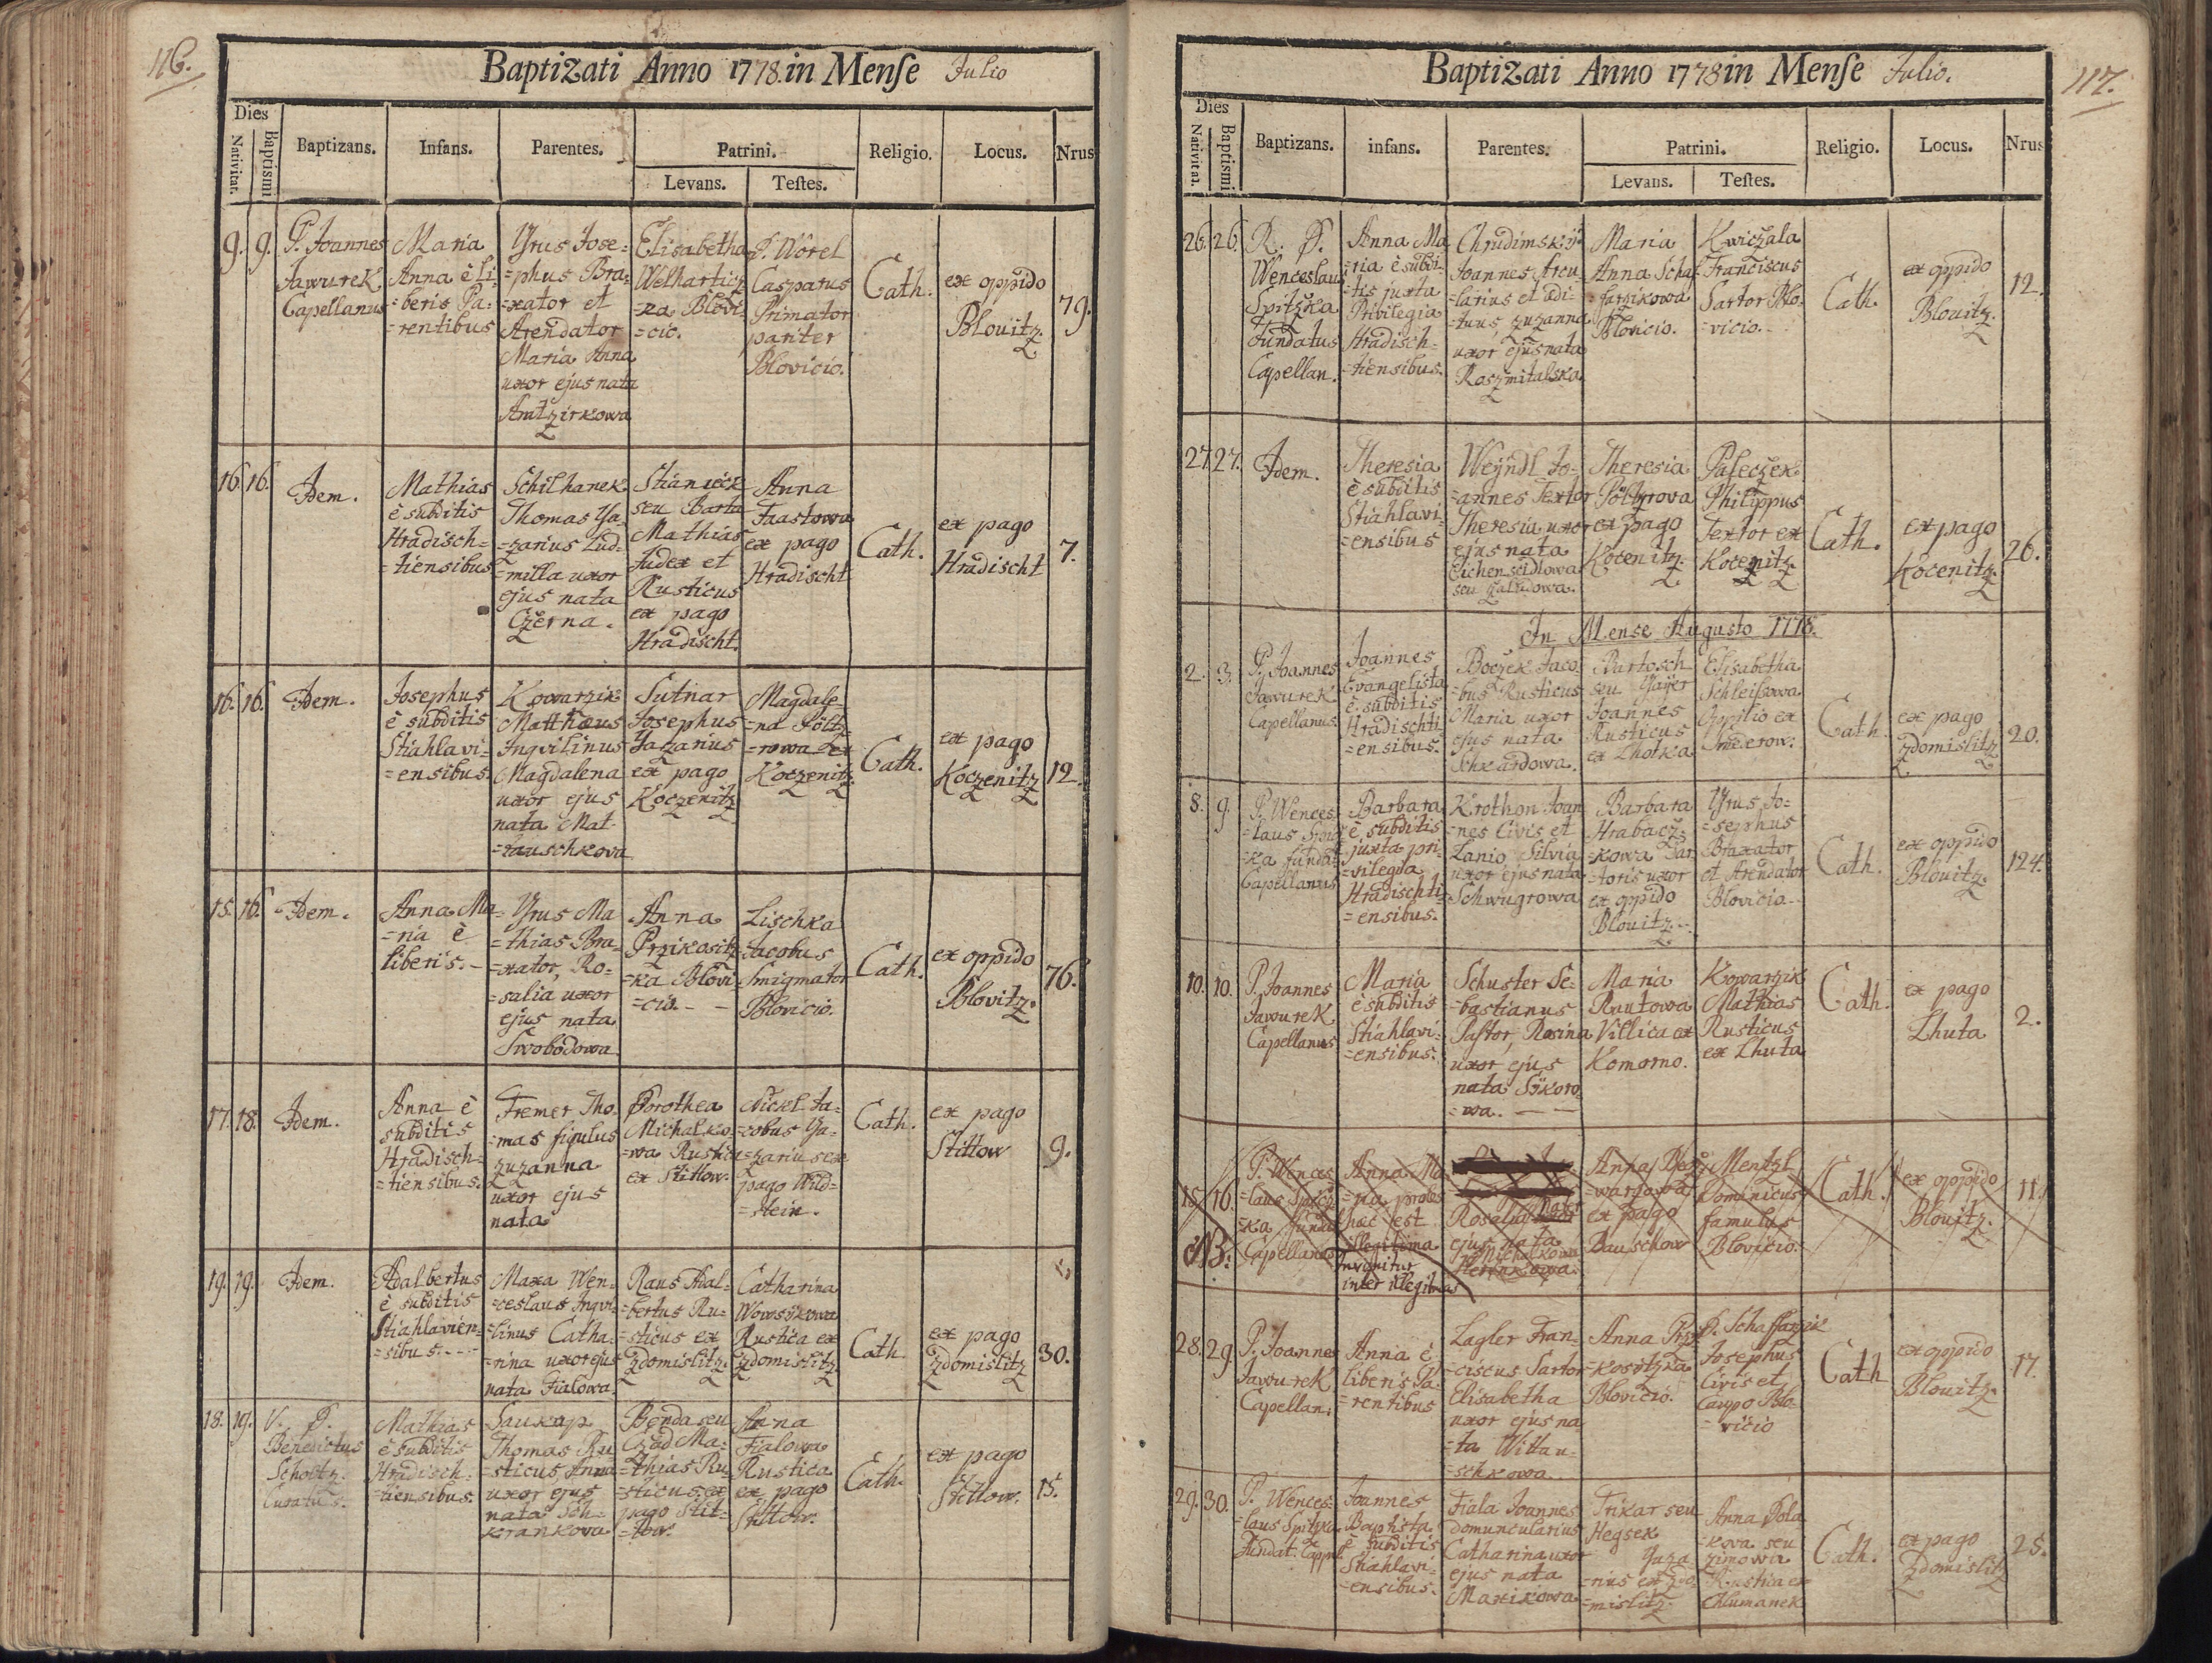 116.
Baptizati Anno 1778. in Mense Julio
Dies
Nativitat.
Baptismi
Baptizans.
Infans.
Parentes.
Patrini.
Levans.
Testes.
Religio.
Locus.
Nrus
9.
9.
P. Joannes
Jawurek
Capellanus
Maria
Anna è li-
=beris Pa-
=rentibus
Yrus Jose=
=phus Bra-
=xator et
Arendator
Maria Anna
uxor ejus nata
Amtzirkowa
Elisabetha
Welhartitz
=ka Blovi-
=cio.
P. Worel
Casparus
Primator
pariter
Blovicio.
Cath.
ex oppido
Blouitz.
79.
16.
16.
Idem.
Mathias
è subditis
Hradisch=
=tiensibus
Schilhanek
Thomas Ya-
=zarius Lud-
=milla uxor
ejus nata
Czerna.
Stianicek
seu Barta
Mathias
Judex et
Rusticus
ex pago
Hradischt.
Anna
Faastowa
ex pago
Hradischt
Cath.
ex pago
Hradischt
7.
16.
16.
Idem.
Josephus
è subditis
Stiahlavi-
=ensibus.
Kowarzik
Matthæus
Inqvilinus
Magdalena
uxor ejus
nata Mat-
=tauschkova
Sutnar
Josephus
Yazarius
ex pago
Koczenitz
Magdale-
=na Poltz
=rowa ex
Koczenitz.
Cath.
ex pago
Koczenitz
12.
15.
16.
Idem.
Anna Ma-
=ria è
liberis.-
Yrus Ma
=thias Bra-
=xator, Ro-
=salia uxor
ejus nata
Swobodowa
Anna
Przikositz
=ka Blovi
=cio.- -
Lischka
Jacobus
Smigmator
Blovicio.
Cath.
ex oppido
Blovitz.
76.
17.
18.
Idem.
Anna è
subditis
Hradisch=
=tiensibus.
Tremer Tho-
=mas figulus
zuzanna
uxor ejus
nata
Dorothea
Michalko-
=wa Rustica
ex Stittow.
Nickl Ja-
=cobus Ya-
=zarius ex
pago Wild=
=stein.
Cath.
ex pago
Stittow
9.
19.
19.
Idem.
Adalbertus
è subditis
Stiahlavien-
=sibus.---
Maxa Wen-
=ceslaus Inqvi-
=linus Catha-
=rina uxor ejus
nata Fialowa.
Raus Adal-
=bertus Ru-
=sticus ex
Zdomislitz.
Catharina
Wowsikowa
Rustica ex
Zdomislitz
Cath.
ex pago
Zdomislitz
30.
18.
19.
V. P.
Benedictus
Scholtz.
Curatus.
Mathias
è subditis
Hradisch-
=tiensibus.
Saukup
Thomas Ru
=sticus, Anna
uxor ejus
nata Sch-
krankova
Benda seu
Czad Ma-
=thias Ru-
=sticus ex
pago Stit-
=tow.
Anna
Fialowa
Rustica
ex pago
Stittow.
Cath.
ex pago
Stittow.
15.
117.
Baptizati Anno 1778 in Mense Julio.
Dies
Nativitat.
Baptismi
Baptizans.
infans.
Parentes.
Patrini.
Levans.
Testes.
Religio.
Locus.
Nrus
26.
26.
R. P.
Wenceslaus
Spitzka
Fundatus
Capellan.
Anna Ma
=ria è subdi-
=tis juxta
Privilegia
Hradisch=
=tiensibus.
Chrudimský
Joannes Arcu
=larius et ædi-
=tuus, zuzanna
uxor ejus nata
Roszmitalska
Maria
Anna Schaf-
=farzikowa
Blovicio.
Kwiczala
Franciscus
Sartor Blo-
=vicio.-
Cath.
ex oppido
Blouitz.
12.
27.
27.
Idem.
Theresia
è subditis
Stiahlavi-
=ensibus
Weyndl Jo-
=annes Textor
Theresia uxor
ejus nata
Eichenseidlowa
Theresia
ex pago
Kocenitz.
Paseczek
Philippus
Textor ex
Kocenitz.
Cath.
ex pago
Kocenitz.
26.
In Mense Augusto 1778.
2.
3.
P. Joannes
Jawurek
Capellanus.
Joannes
Evangelista
è subditis
Hradischti
=ensibus.
Boczek Jaco-
=bus Rusticus
Maria uxor
ejus nata
Schkardowa.
Bartosch
seu Yayer
Joannes
Rusticus
ex Lhotka
Elisabetha
Schleisowa
Oppilio ex
Cath.
ex pago
Zdomislitz
20.
8.
9.
P. Wences
=laus Spitz
=ka fundat
Capellanus
Barbara
è subditis
juxta pri-
=vilegia
Hradischti-
=ensibus.
Krothon Joan
=nes Civis et
Lanio Silvia
uxor ejus nata
Schwugrowa
Barbara
Hrabacz-
=kowa Sar-
=toris uxor
ex oppido
Blouitz.-
Yrus Jo=
=sephus
Braxator
et Arendator
Blovicio-
Cath.
ex oppido
Blouitz.
124.
10.
10.
P. Joannes
Jawurek
Capellanus
Maria
è subditis
Stiahlavi-
=ensibus.
Schuster Se-
=bastianus
Pastor, Rosina
uxor ejus
nata Sykoro
=wa. - -
Maria
Rautowa
Villica ex
Komorno.
Kowarzik
Mathias
Rusticus
ex Lhuta
Cath.
ex pago
Lhuta
2.
15
16.
NB:
P. Wences
=laus Spitz
=ka funda
Capellanus
Anna Ma
=ria proles
hæc est
illegitima
invenitur
inter illegitimas
Rosalia Mater
ejus nata
Michalkowa
Anna
ex pago
Bauschow
Mentzl
Dominicus
famulus
Blovicio.
Cath.
ex oppido
Blouitz.
11.
28.
29.
P. Joannes
Jawurek
Capellan:
Anna è
liberis Pa-
=rentibus
Lagler Fran-
=ciscus Sartor
Elisabetha
uxor ejus na
=ta Wittau-
=schkowa
Anna Prz
=kositzka
Blovicio.
P. Schaffarzik
Josephus
Civis et
Caupo Blo-
=vicio
Cath
ex oppido
Blouitz.
17.
29.
30.
P. Wences-
=laus Spitzka
Fundat. Cappel.
Joannes
Baptista
è subditis
Stiahlavi-
=ensibus.
Fiala Joannes
domuncularius
Catharina uxor
ejus nata
Maxikowa
Trikar seu
Hegsek
Yaza
=rius ex Zdo
=mislitz.
Anna Pola
=kova seu
Zimowa
Rustica ex
Chlumanek
Cath.
ex pago
Zdomislitz
25.